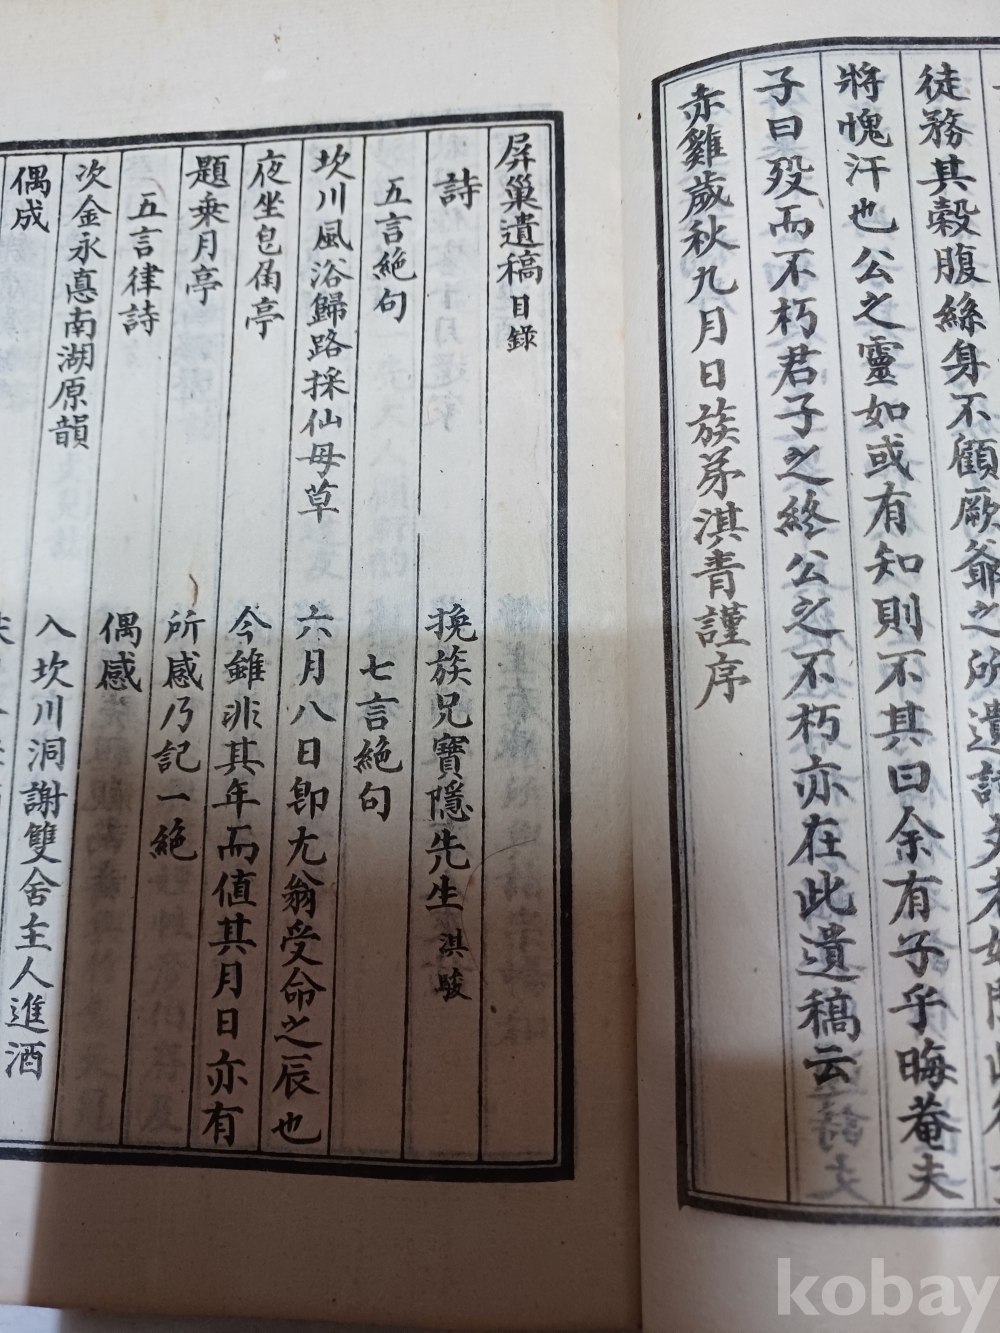 徒務其穀腹絲身不顧厥爺之所遺
將愧汗也公之靈如或有知則不其曰余有子乎晦菴夫
子曰歿而不朽君子之終公之不朽亦在此遺稿云
赤雞歲秋九月日族弟淇青謹序
屏巢遺稿目錄
詩
挽族兄寶隱先生 淇駿
五言絕句
七言絕句
坎川風浴歸路採仙母草
六月八日卽尤翁受命之辰也
夜坐皀角亭
今雖非其年而値其月日亦有
題乘月亭
所感乃記一絕
五言律詩
偶感
次金永悳南湖原韻
入坎川洞謝雙舍主人進酒
偶成
kobay